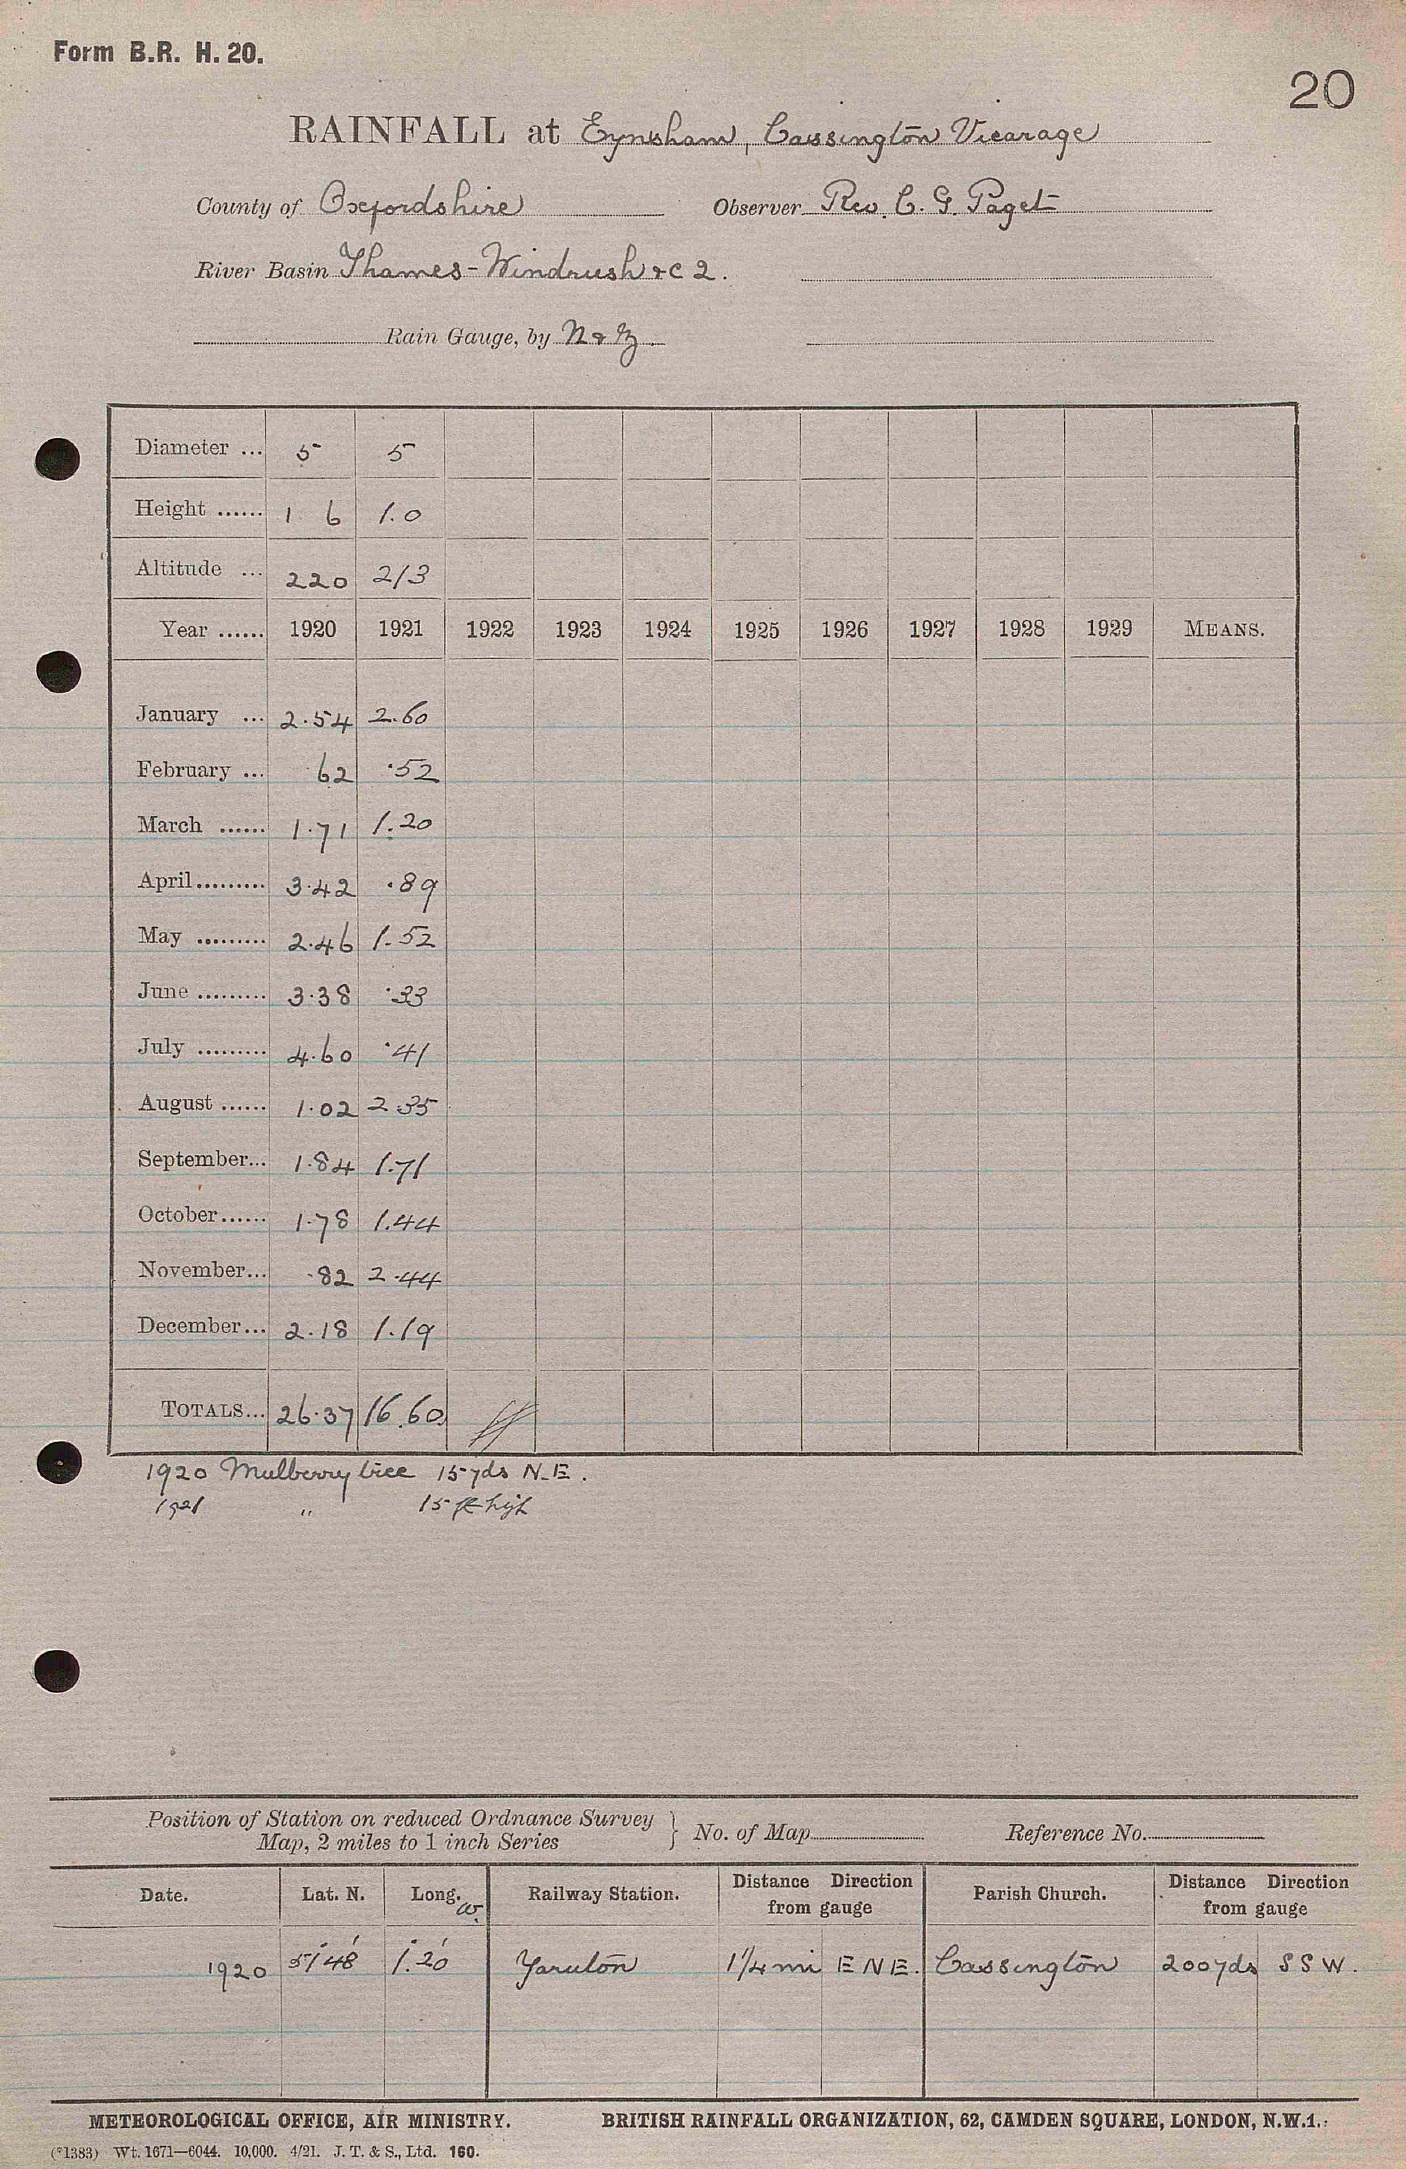 Form B.R. H. 20.
20
RAINFALL at Eynsham, Cassington Vicarage
County of Oxfordshire Observer Rev. C. G. Paget
River Basin Thames - Windrush &c 2.
Rain Gauge, by N & Z.
Diameter ... 5 5
Height ...... 1 6 1.0
Altitude ... 220 213
Year ...... 1920 1921 1922 1923 1924 1925 1926 1927 1928 1929 MEANS.
January ... 2.54 2.60
February ... .62 .52
March ...... 1.71 1.20
April......... 3.42 .89
May ......... 2.46 1.52
June ......... 3.38 .33
July ......... 4.60 .41
August ...... 1.02 2.35
September... 1.84 1.71
October...... 1.78 1.44
November... .82 2.44
December... 2.18 1.19
TOTALS... 26.37 16.60
1920 Mulberry tree 15 yds N.E.
1921 " 15 ft high
Position of Station on reduced Ordnance Survey
Map, 2 miles to 1 inch Series } No. of Map Reference No.
Date. Lat. N. Long. W. Railway Station. Distance Direction from gauge Parish Church. Distance Direction from gauge
1920 51° 48' 1° 20' Yarnton 1 1/4 mi E N E. Cassington 200 yds S S W.
METEOROLOGICAL OFFICE, AIR MINISTRY. BRITISH RAINFALL ORGANIZATION, 62, CAMDEN SQUARE, LONDON, N.W.1.
(*1383) Wt. 1671—6044. 10,000. 4/21. J. T. & S., Ltd. 160.